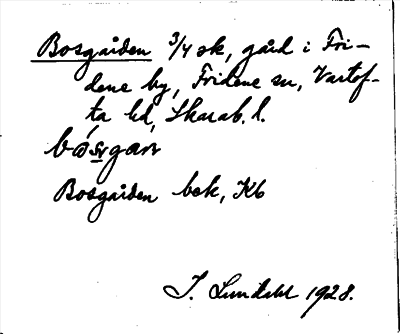 Bosgården 3/4 sk, gård i Fri-
dene by, Fridene sn, Vartof-
ta hd, Skarab. l.
bósgaṙ
Bosgården bok, Kb
I. Lundahl 1928.